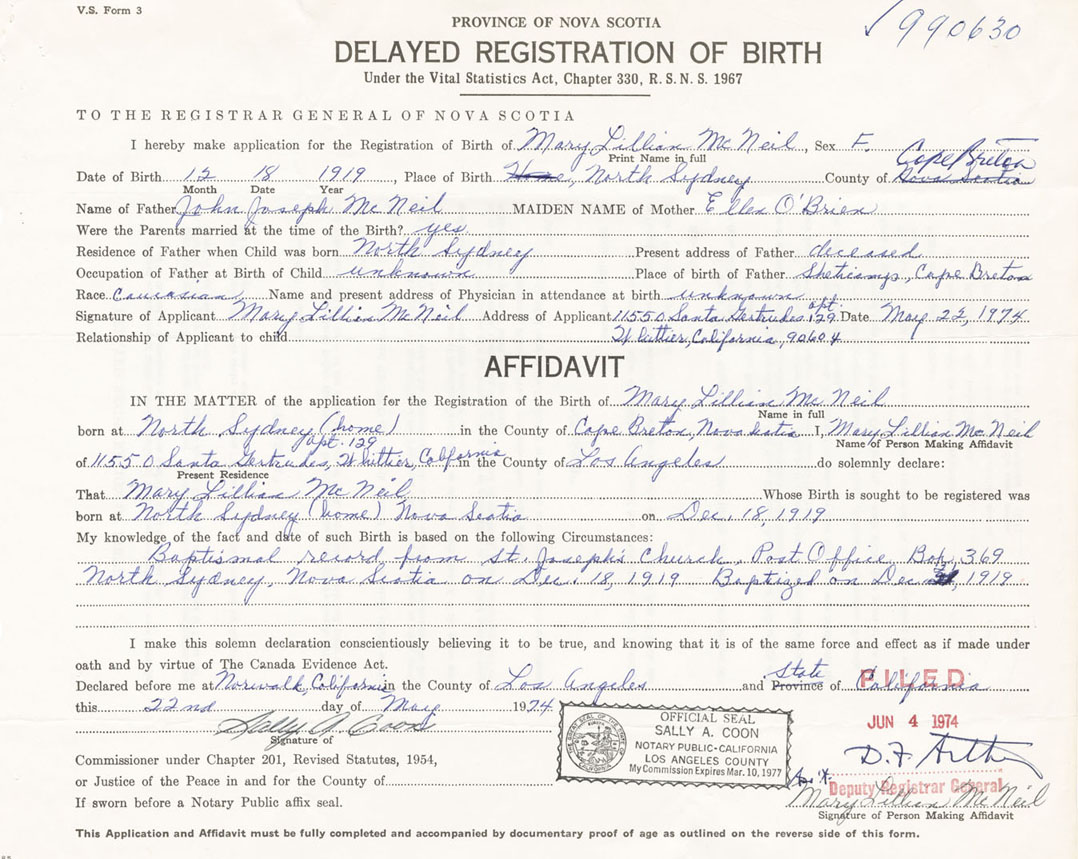 V.S. Form 3
PROVINCE OF NOVA SCOTIA
990630
DELAYED REGISTRATION OF BIRTH
Under the Vital Statistics Act, Chapter 330, R.S.N.S. 1967
TO THE REGISTRAR GENERAL OF NOVA SCOTIA
I hereby make application for the Registration of Birth of Mary Lillian McNeil, Sex F.
Print Name in full
Cape Breton
Date of Birth 12 18 1919, Place of Birth Home, North Sydney County of Nova Scotia
Month Date Year
Name of Father John Joseph McNeil MAIDEN NAME of Mother Ellen O'Brien
Were the Parents married at the time of the Birth? yes
Residence of Father when Child was born North Sydney Present address of Father deceased
Occupation of Father at Birth of Child unknown Place of birth of Father Sheticamp, Cape Breton
Race Caucasian Name and present address of Physician in attendance at birth unknown
Signature of Applicant Mary Lillian McNeil Address of Applicant 11550 Santa Gertrudes apt. 129 Date May 22, 1974
Relationship of Applicant to child Whittier, California, 90604
AFFIDAVIT
IN THE MATTER of the application for the Registration of the Birth of Mary Lillian McNeil
Name in full
born at North Sydney (home) in the County of Cape Breton, Nova Scotia I, Mary Lillian McNeil
Name of Person Making Affidavit
apt. 129
of 11550 Santa Gertrudes, Whittier, California in the County of Los Angeles do solemnly declare:
Present Residence
That Mary Lillian McNeil Whose Birth is sought to be registered was
born at North Sydney (home) Nova Scotia on Dec. 18, 1919
My knowledge of the fact and date of such Birth is based on the following Circumstances:
Baptismal record from St. Joseph's Church, Post Office Box 369
North Sydney, Nova Scotia on Dec. 18, 1919 Baptized on Dec , 1919
I make this solemn declaration conscientiously believing it to be true, and knowing that it is of the same force and effect as if made under
oath and by virtue of The Canada Evidence Act.
Declared before me at Norwalk, California in the County of Los Angeles and Province State of California
FILED
this 22nd day of May 1974
JUN 4 1974
Sally A. Coon
Signature of
OFFICIAL SEAL
SALLY A. COON
NOTARY PUBLIC-CALIFORNIA
LOS ANGELES COUNTY
My Commission Expires Mar. 10, 1977
Commissioner under Chapter 201, Revised Statutes, 1954,
or Justice of the Peace in and for the County of
Deputy Registrar General
If sworn before a Notary Public affix seal.
Mary Lillian McNeil
Signature of Person Making Affidavit
This Application and Affidavit must be fully completed and accompanied by documentary proof of age as outlined on the reverse side of this form.